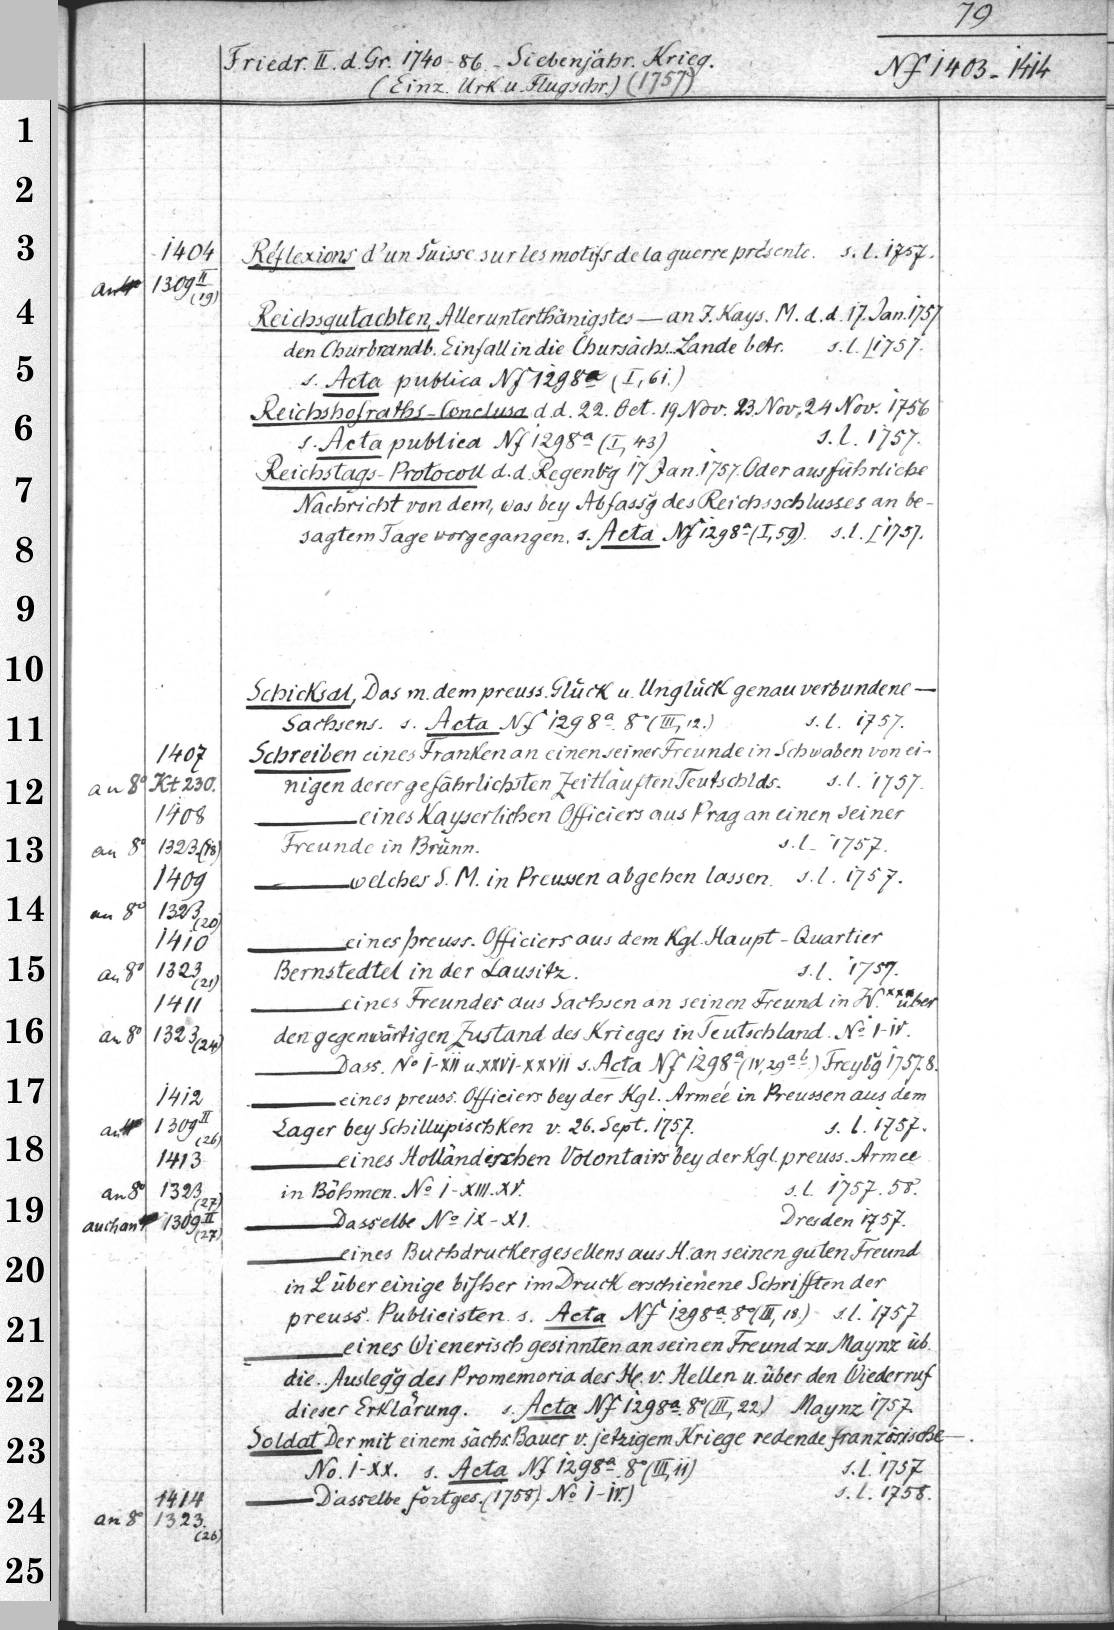 79
Friedr. II. d. Gr. 1740-86 - Siebenjähr. Krieg.
(Einz. Urk u. Flugschr.) (1757)
Nf 1403-1414
1
2
3
1404 Réflexions d'un Suisse sur les motifs de la guerre présente. s. l. 1757.
an 4° 1309 II (19)
4
Reichsgutachten, Allerunterthänigstes — an I. Kays. M. d. d. 17. Jan. 1757
den Churbrandb. Einfall in die Chursächs. Lande betr. s. l. [1757.
5
s. Acta publica Nf 1298a (I, 61.)
6
Reichshofraths-Conclusa d. d. 22. Oct. 19 Nov. 23. Nov, 24 Nov. 1756
s. Acta publica Nf 1298a (I, 43) s. l. 1757.
7
Reichstags-Protocoll d. d. Regenbg 17 Jan. 1757. Oder ausführliche
Nachricht von dem, was bey Abfassg des Reichsschlusses an be-
8
sagtem Tage vorgegangen. s. Acta Nf 1298a (I, 59). s. l. [1757.
9
10
Schicksal, Das m. dem preuss. Glück u. Unglück genau verbundene —
11
Sachsens. s. Acta Nf 1298a. 8° (III, 12.) s. l. 1757.
1407 Schreiben eines Franken an einen seiner Freunde in Schwaben von ei-
12
an 8° Kt 230. nigen derer gefährlichsten Zeitläuften Teutschlds. s. l. 1757.
1408 — eines Kayserlichen Officiers aus Prag an einen seiner
13
an 8° 1323 (18) Freunde in Brünn. s. l. 1757.
1409 — welches S. M. in Preussen abgehen lassen. s. l. 1757.
14
an 8° 1323 (20)
1410 — eines preuss. Officiers aus dem Kgl. Haupt-Quartier
15
an 8° 1323 (21) Bernstedtel in der Lausitz. s. l. 1757.
1411 — eines Freundes aus Sachsen an seinen Freund in W. xxx über
16
an 8° 1323 (24) den gegenwärtigen Zustand des Krieges in Teutschland. No I-IV.
— Dass. No I-XII u. XXVI-XXVII s. Acta Nf 1298a (IV, 29 a b.) Freybg 1757. 8.
17
1412 — eines preuss. Officiers bey der Kgl. Armée in Preussen aus dem
an 4° 1309 II (26) Lager bey Schillupischken v. 26. Sept. 1757. s. l. 1757.
18
1413 — eines Holländischen Volontairs bey der Kgl. preuss. Armee
an 8° 1323 (27) in Böhmen. No I-XIII. XV. s. l. 1757. 58.
19
auch an 4° 1309 II (27) — Dasselbe No IX-XI. Dresden 1757.
— eines Buchdruckergesellens aus H. an seinen guten Freund
20
in L über einige bissher im Druck erschienene Schrifften der
21
preuss. Publicisten. s. Acta Nf 1298a. 8° (III, 18.) s. l. 1757
— eines Wienerisch gesinnten an seinen Freund zu Maynz üb.
22
die Auslegg des Promemoria des He. v. Hellen u. über den Wiederruf
dieser Erklärung. s. Acta Nf 1298a. 8° (III, 22.) Maynz 1757
23
Soldat Der mit einem sächs. Bauer v. jetzigem Kriege redende französische —.
No. I-XX. s. Acta Nf 1298a. 8° (III, 11) s. l. 1757
24
1414 — Dasselbe fortges. (1758) No I-IV.) s. l. 1758.
an 8° 1323. (26)
25